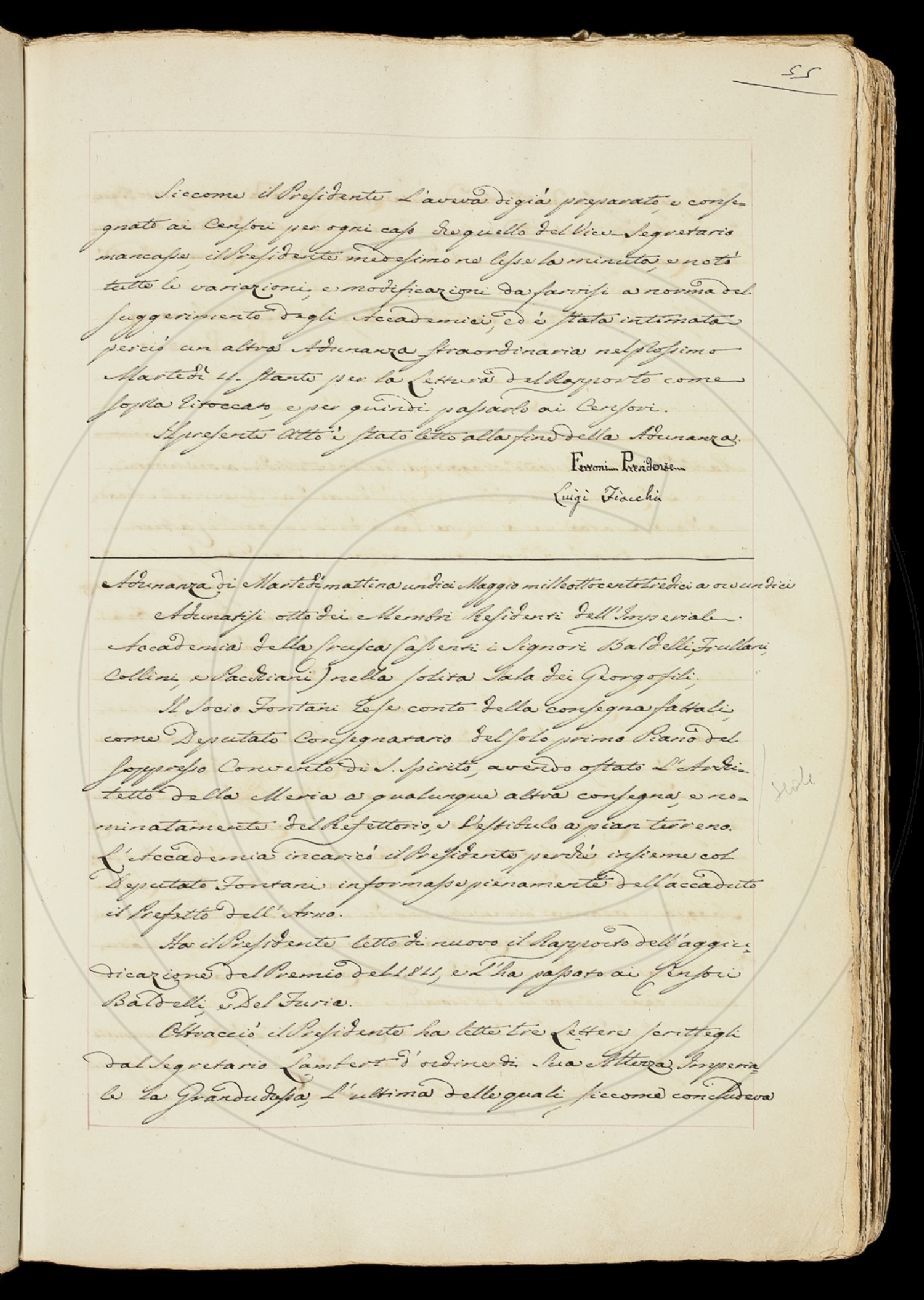 55
Siccome il Presidente l'aveva digià preparato, e conse=
gnato ai Censori per ogni caso che quello del Vice Segretario
mancasse, il Presidente medesimo ne lesse la minuta, e notò
tutte le variazioni, e modificazioni da farvisi a norma del
suggerimento degli Accademici, ed è stata intimata
perciò un altra Adunanza straordinaria nel prossimo
Martedì 11. stante per la Lettura del Rapporto come
sopra ritoccato, e per quindi passarlo ai Censori.
Il presente Atto è stato letto alla fine della Adunanza.
Ferroni Presidente
Luigi Fiacchi
Adunanza di Martedì mattina undici Maggio milleottocentotredici a ore undici
Adunatisi otto dei Membri Residenti dell'Imperiale
Accademia della Crusca (assenti i Signori Baldelli, Frullani,
Collini, e Pacchiani) nella solita Sala dei Georgofili,
Il Socio Fontani rese conto della consegna fattali,
come Deputato Consegnatario del solo primo Piano del
soppresso Convento di S. Spirito, avendo ostato l'Archi=
tetto della Meria a qualunque altra consegna, e no=
minatamente del Refettorio, e Vestibulo a pian terreno.
L'Accademia incaricò il Presidente perchè insieme col
Deputato Fontani informasse pienamente dell'accaduto
il Prefetto dell'Arno.
Ha il Presidente letto di nuovo il Rapporto dell'aggiu=
dicazione del Premio del 1811, e l'ha passato ai Censori
Baldelli, e Del Furia.
Oltracciò il Presidente ha lette tre Lettere scrittegli
dal Segretario Lambert d'ordine di Sua Altezza Imperia=
le la Granduchessa, l'ultima delle quali, siccome concludeva